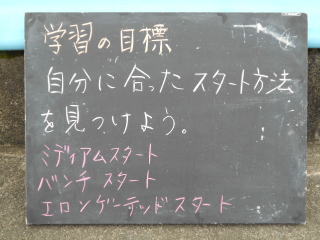 学習の目標
自分に合ったスタート方法
を見つけよう。
ミディアムスタート
バンチスタート
エロンゲーテッドスタート